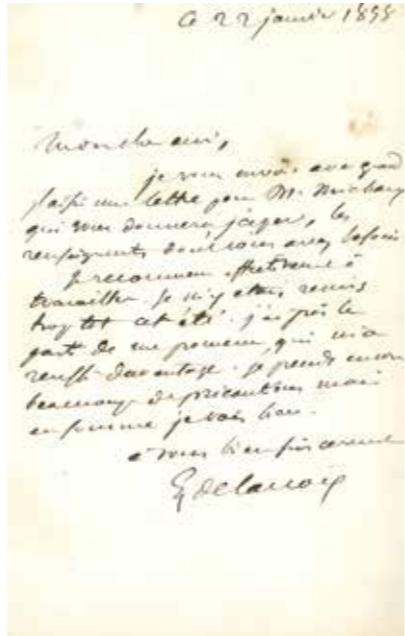 Ce 22 janvier 1898
Mon cher ami,
je vous envoie avec grand
plaisir une lettre pour Mr
qui vous donnera j'espère, les
renseignements dont vous avez besoin
Je recommence effectivement à
travailler. Je m'y étais remis
trop tôt cet été. j'ai pris le
parti de me promener, qui m'a
réussi davantage. je prends encore
beaucoup de précautions mais
en somme je vais bien.
à vous bien sincèrement
Delannoy